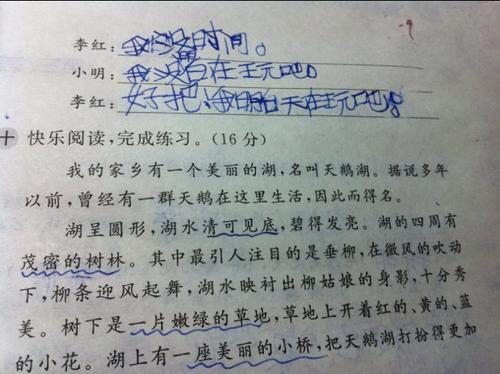 李红：我没时间。
小明：我没自在玩吧。
李红：好把，我明天在玩吧。
十 快乐阅读，完成练习。（16分）
我的家乡有一个美丽的湖，名叫天鹅湖。据说多年
以前，曾经有一群天鹅在这里生活，因此而得名。
湖呈圆形，湖水清可见底，碧得发亮。湖的四周有
茂密的树林。其中最引人注目的是垂柳，在微风的吹动
下，柳条迎风起舞，湖水映衬出柳姑娘的身影，十分秀
美。树下是一片嫩绿的草地，草地上开着红的、黄的、蓝
的小花。湖上有一座美丽的小桥，把天鹅湖打扮得更加